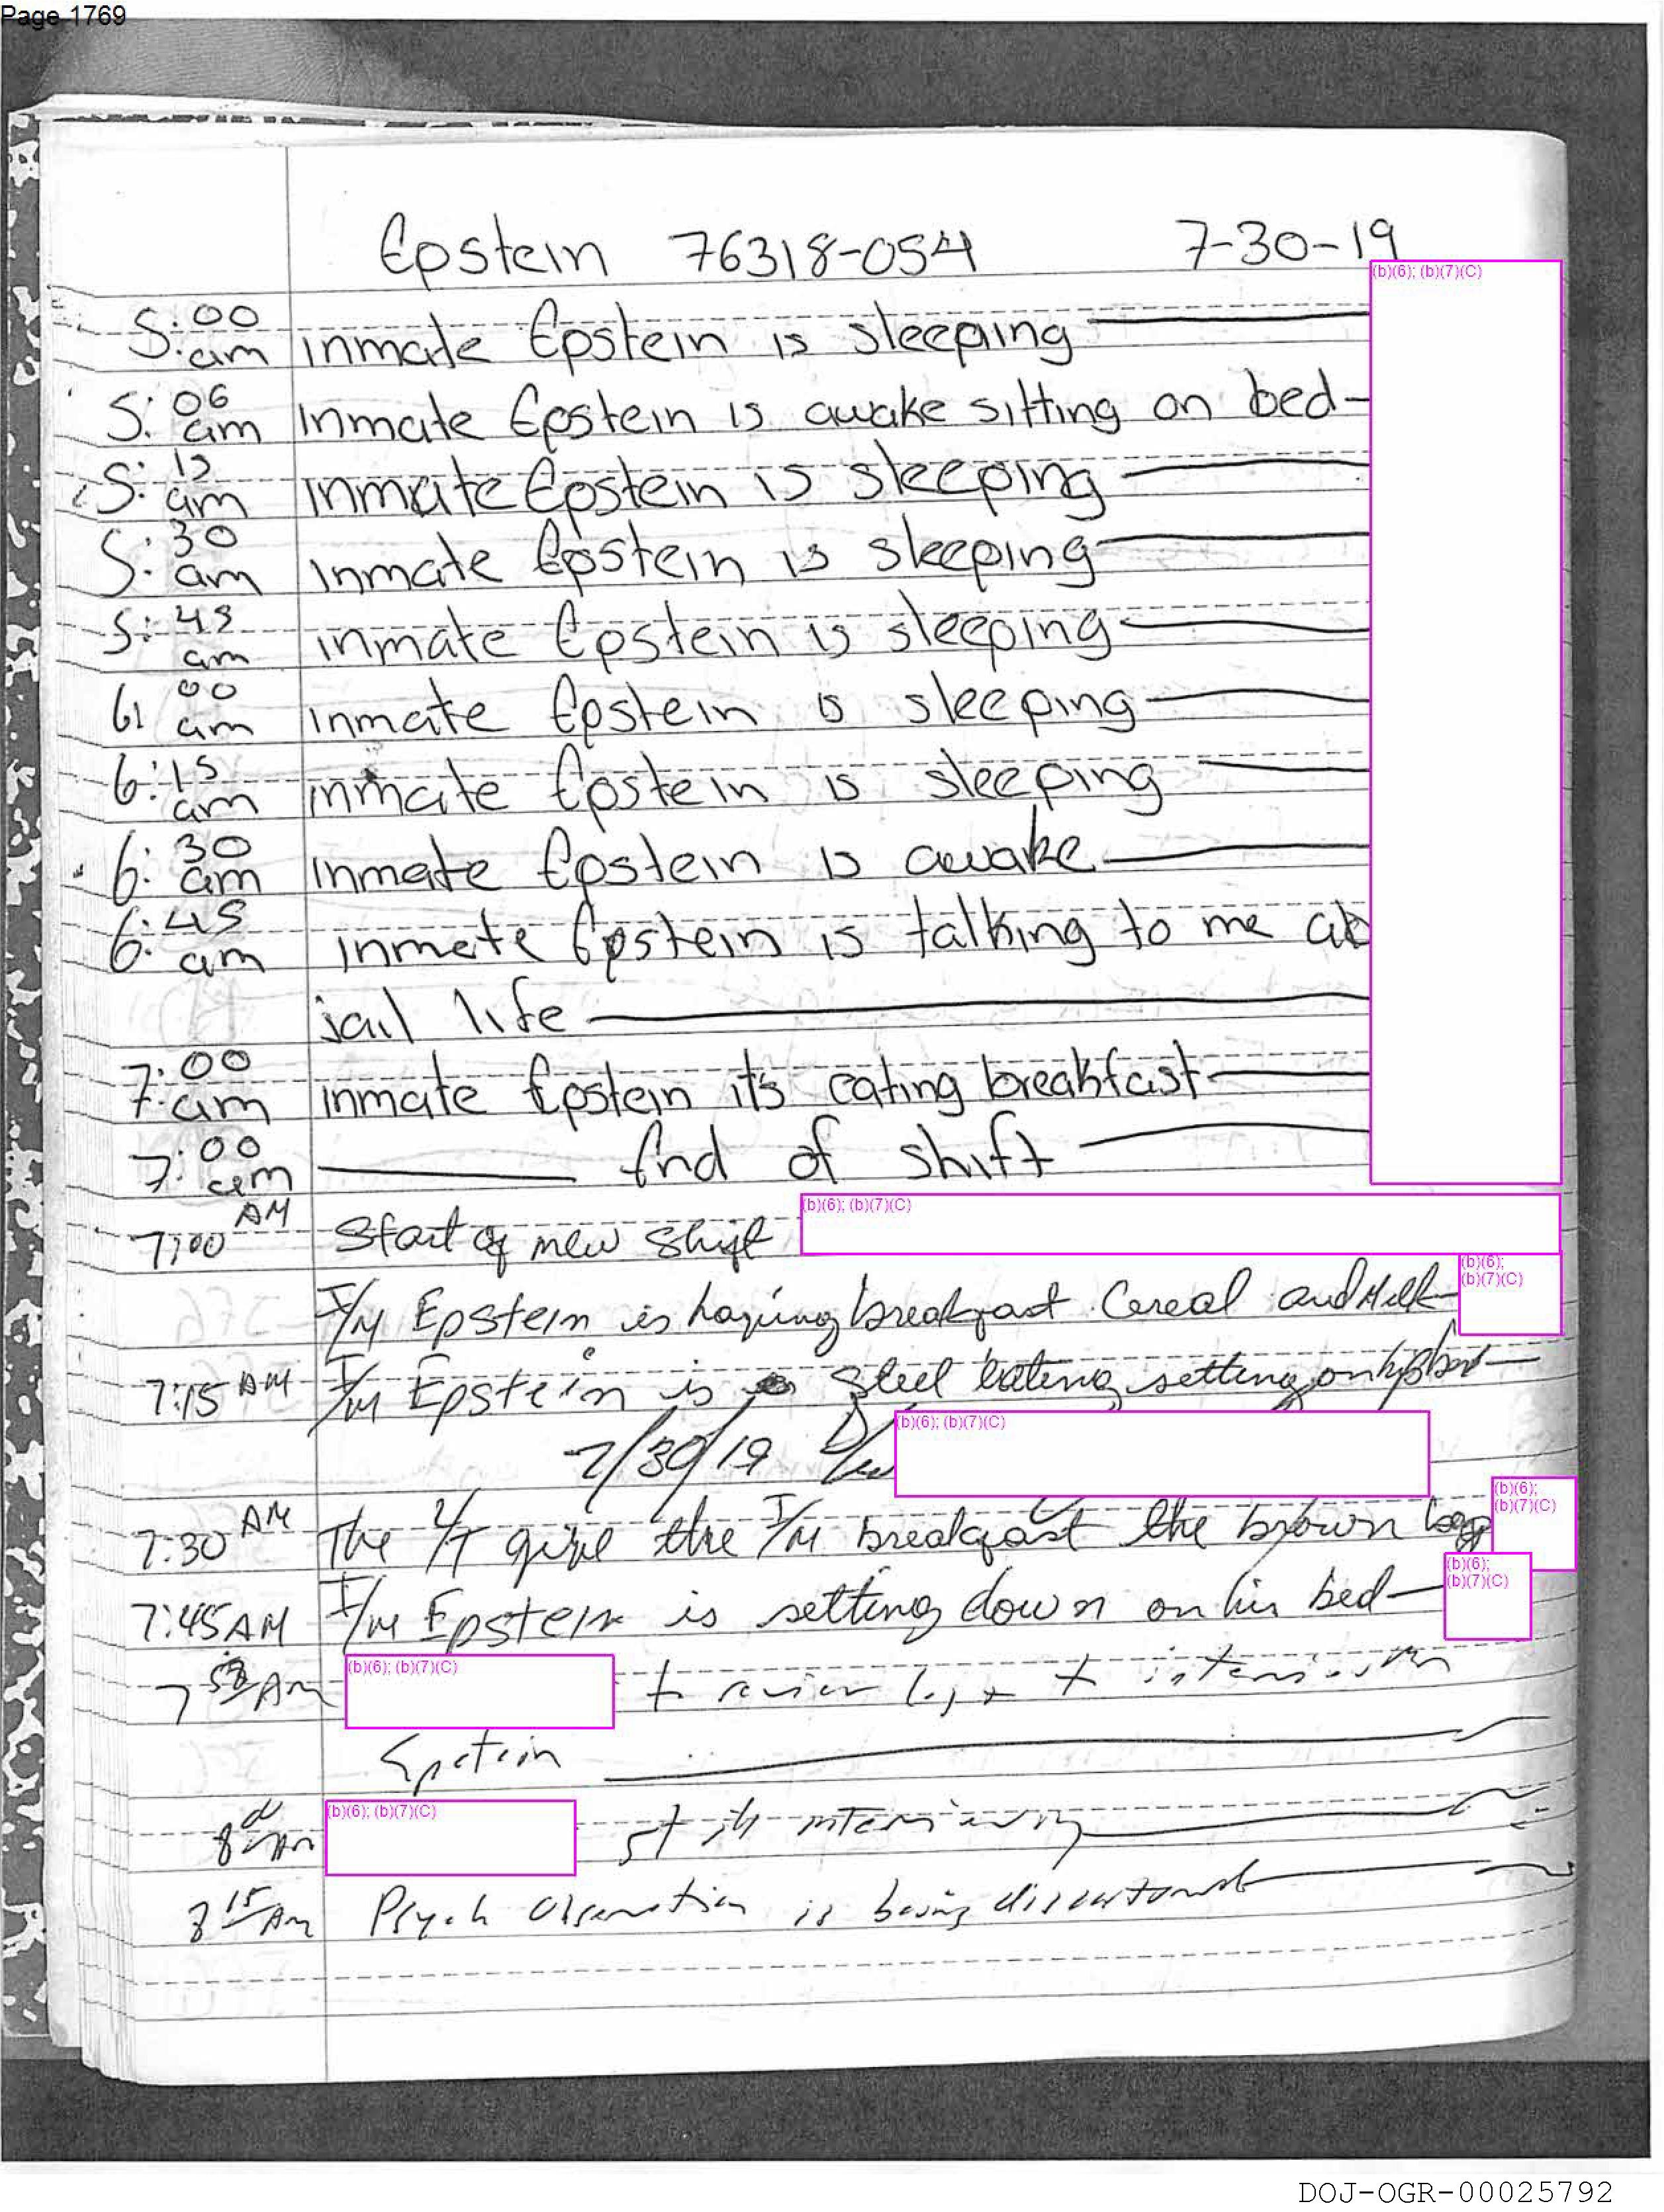 Page 1769
Epstein 76318-054 7-30-19
(b)(6); (b)(7)(C)
5:00 am inmate Epstein is sleeping
5:06 am inmate Epstein is awake sitting on bed
5:15 am inmate Epstein is sleeping
5:30 am inmate Epstein is sleeping
5:45 am inmate Epstein is sleeping
6:00 am inmate Epstein is sleeping
6:15 am inmate Epstein is sleeping
6:30 am inmate Epstein is awake
6:45 am inmate Epstein is talking to me ab
jail life
7:00 am inmate Epstein it's eating breakfast
7:00 am End of shift
7:00 AM Start of new shift (b)(6); (b)(7)(C)
I/M Epstein is having breakfast Cereal and Milk (b)(6); (b)(7)(C)
7:15 AM I/M Epstein is still eating setting on his bed
7/30/19 (b)(6); (b)(7)(C)
7:30 AM The give the I/M breakfast the brown bag (b)(6); (b)(7)(C)
7:45 AM I/M Epstein is setting down on his bed (b)(6); (b)(7)(C)
7 AM (b)(6); (b)(7)(C) to review log +
Epstein
8 AM (b)(6); (b)(7)(C) still interviewing
8 15 AM Psych Observation is being
DOJ-OGR-00025792